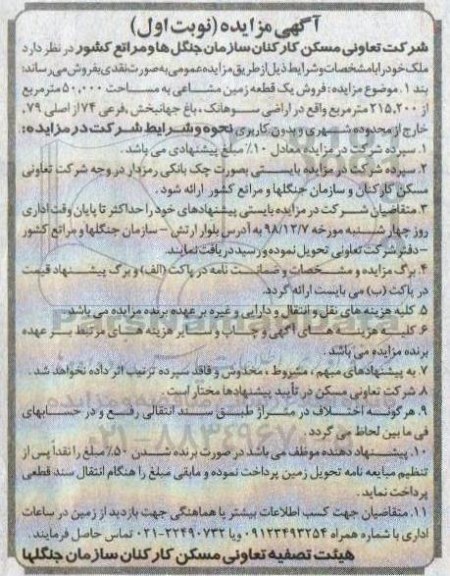 آگهی مزایده (نوبت اول)
شرکت تعاونی مسکن کارکنان سازمان جنگل ها و مراتع کشور در نظر دارد
ملک خود را با مشخصات و شرایط ذیل از طریق مزایده عمومی به صورت نقدی بفروش می رساند:
بند ۱. موضوع مزایده: فروش یک قطعه زمین مشاعی به مساحت ۵۰،۰۰۰ مترمربع
از ۲۱۵،۲۰۰ مترمربع واقع در اراضی سوهانک ، باغ جهانبخش ،فرعی ۷۴ از اصلی ۷۹،
خارج از محدوده شهری و بدون کاربری نحوه و شرایط شرکت در مزایده :
۱. سپرده شرکت در مزایده معادل ۱۰٪ مبلغ پیشنهادی می باشد .
۲. سپرده شرکت در مزایده بایستی بصورت چک بانکی رمزدار در وجه شرکت تعاونی
مسکن کارکنان و سازمان جنگلها و مراتع کشور ارائه شود .
۳. متقاضیان شرکت در مزایده بایستی پیشنهادهای خود را حداکثر تا پایان وقت اداری
روز چهار شنبه مورخه ۹۸/۱۲/۷ به آدرس بلوار ارتش – سازمان جنگلها و مراتع کشور
– دفتر شرکت تعاونی تحویل نموده و رسید دریافت نمایند.
۴. برگ مزایده و مشخصات و ضمانت نامه در پاکت (الف) و برگ پیشنهاد قیمت
در پاکت (ب) می بایست ارائه گردد.
۵. کلیه هزینه های نقل و انتقال و دارایی و غیره بر عهده برنده مزایده می باشد.
۶. کلیه هزینه های آگهی و چاپ و سایر هزینه های مرتبط بر عهده
برنده مزایده می باشد .
۷. به پیشنهادهای مبهم ، مشروط ، مخدوش و فاقد سپرده ترتیب اثر داده نخواهد شد .
۸. شرکت تعاونی مسکن در تأیید پیشنهادها مختار است .
۹. هرگونه اختلاف در متراژ طبق سند انتقالی رفع و در حسابهای
فی ما بین لحاظ می گردد .
۱۰. پیشنهاد دهنده موظف می باشد در صورت برنده شدن ۵۰٪ مبلغ را نقداً پس از
تنظیم مبایعه نامه تحویل زمین پرداخت نموده و مابقی مبلغ را هنگام انتقال سند قطعی
پرداخت نماید.
۱۱. متقاضیان جهت کسب اطلاعات بیشتر یا هماهنگی جهت بازدید از زمین در ساعات
اداری با شماره همراه ۰۹۱۲۳۴۹۳۲۵۴ و یا ۲۲۴۹۰۷۳۲-۰۲۱ تماس حاصل فرمایند.
هیئت تصفیه تعاونی مسکن کارکنان سازمان جنگلها
۰۲۱-۸۸۳۴۹۶۷۰